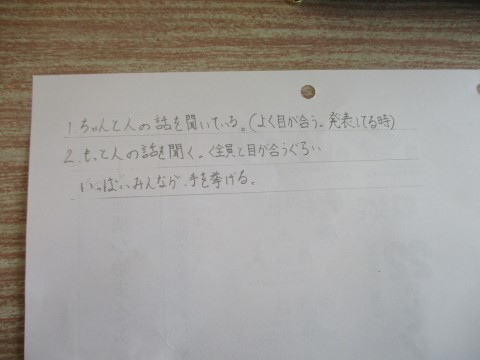 1.ちゃんと人の話を聞いている。(よく目が合う。発表してる時)
2.もっと人の話を聞く。〈全員と目が合うぐらい
いっぱいみんなが手を挙げる。